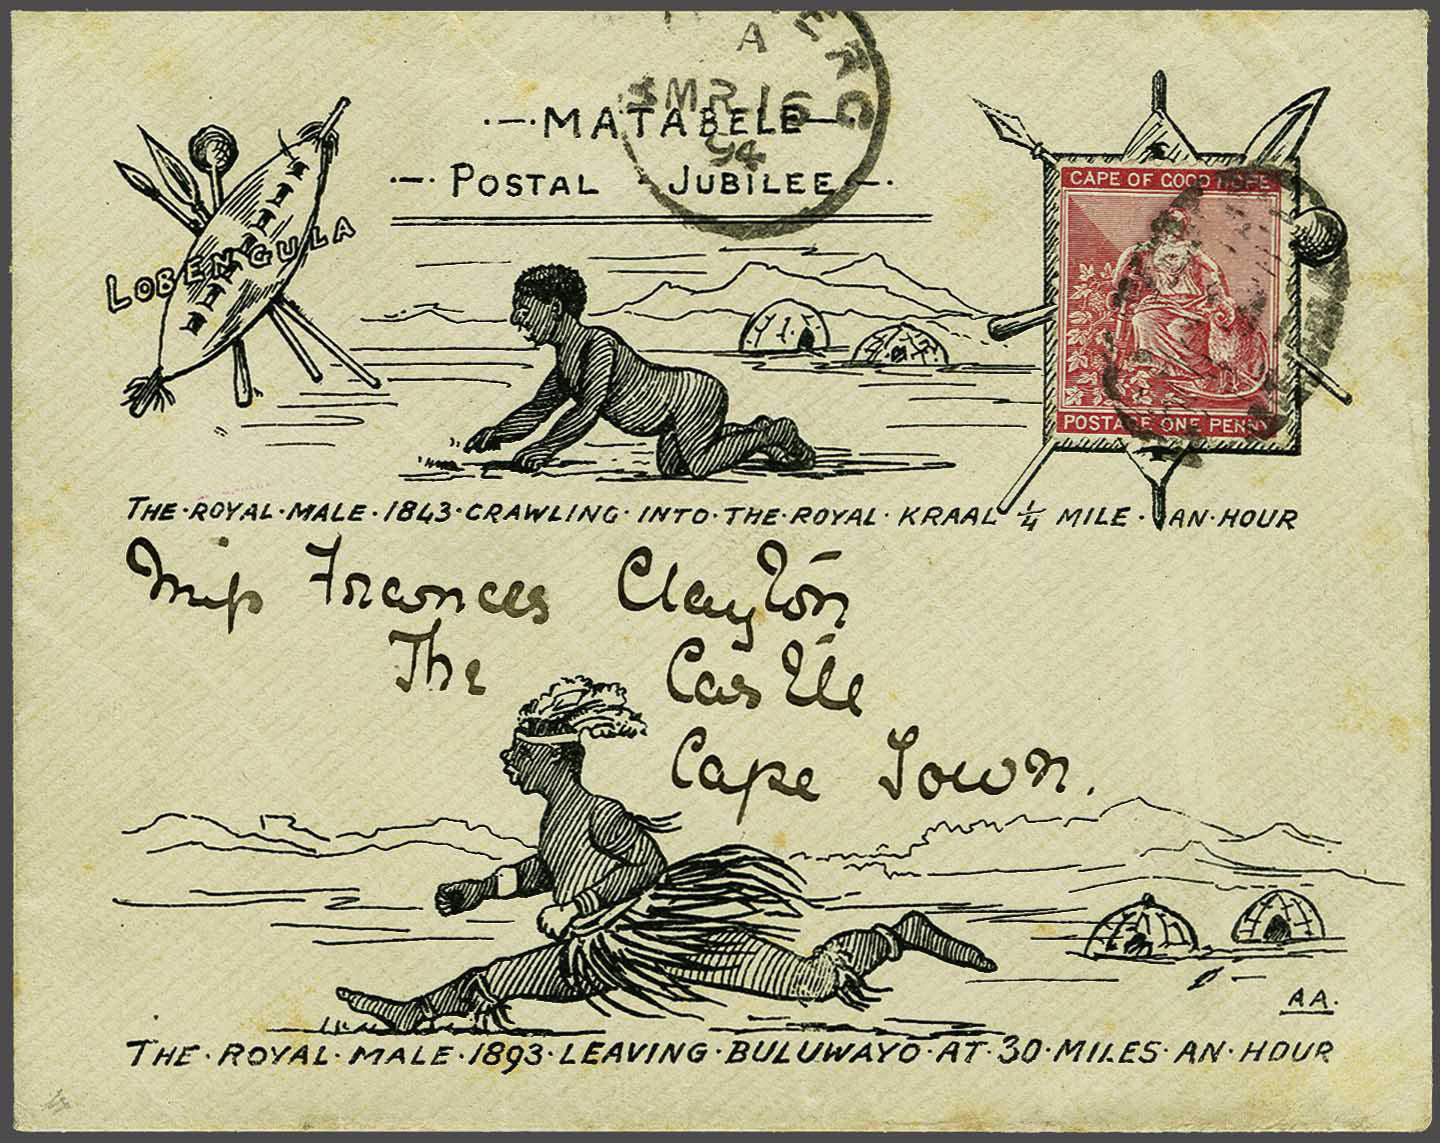 ERG
A
MR 16
94
·—·MATABELE—·
·—· POSTAL JUBILEE —·
LOBENGULA
CAPE OF GOOD HOPE
POSTAGE ONE PENNY
THE·ROYAL·MALE·1843·CRAWLING·INTO·THE·ROYAL·KRAAL ¼ MILE·AN·HOUR
Miss Frances Clayton
The Castle
Cape Town.
A A.
THE·ROYAL·MALE·1893·LEAVING·BULUWAYO·AT·30·MILES·AN·HOUR